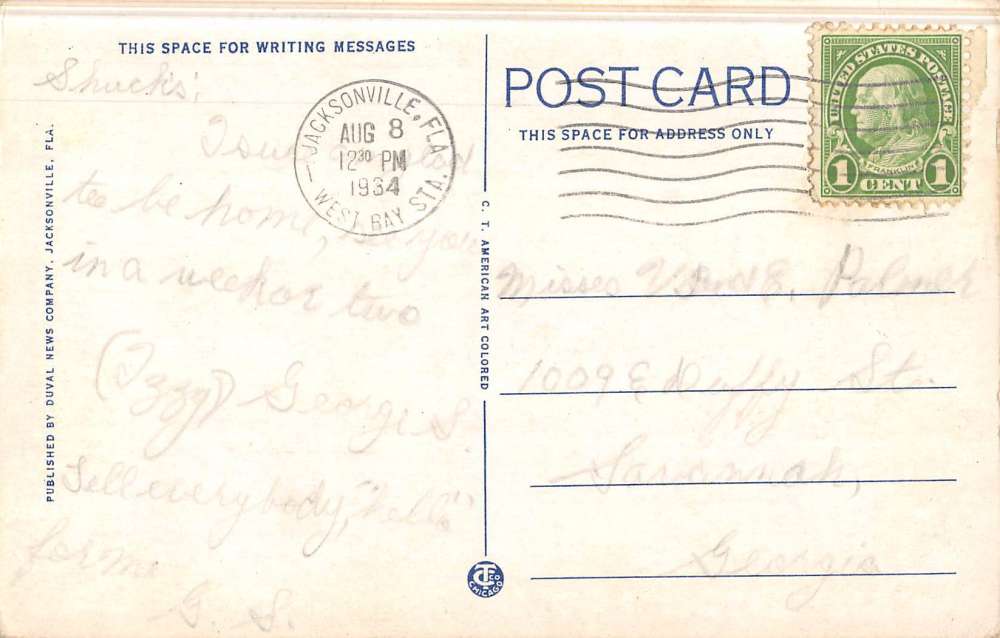 THIS SPACE FOR WRITING MESSAGES
Shucks!
to be home, see you
in a week or two
(Izzy) George S
Tell everybody, "hello"
for me
G. S.
PUBLISHED BY DUVAL NEWS COMPANY, JACKSONVILLE, FLA.
JACKSONVILLE, FLA.
AUG 8
12 30 PM
1934
WEST BAY STA.
C. T. AMERICAN ART COLORED
CT CO
CHICAGO
POST CARD
THIS SPACE FOR ADDRESS ONLY
UNITED STATES POSTAGE
FRANKLIN
1 CENT 1
Misses
1009 E Duffy St.
Savannah,
Georgia